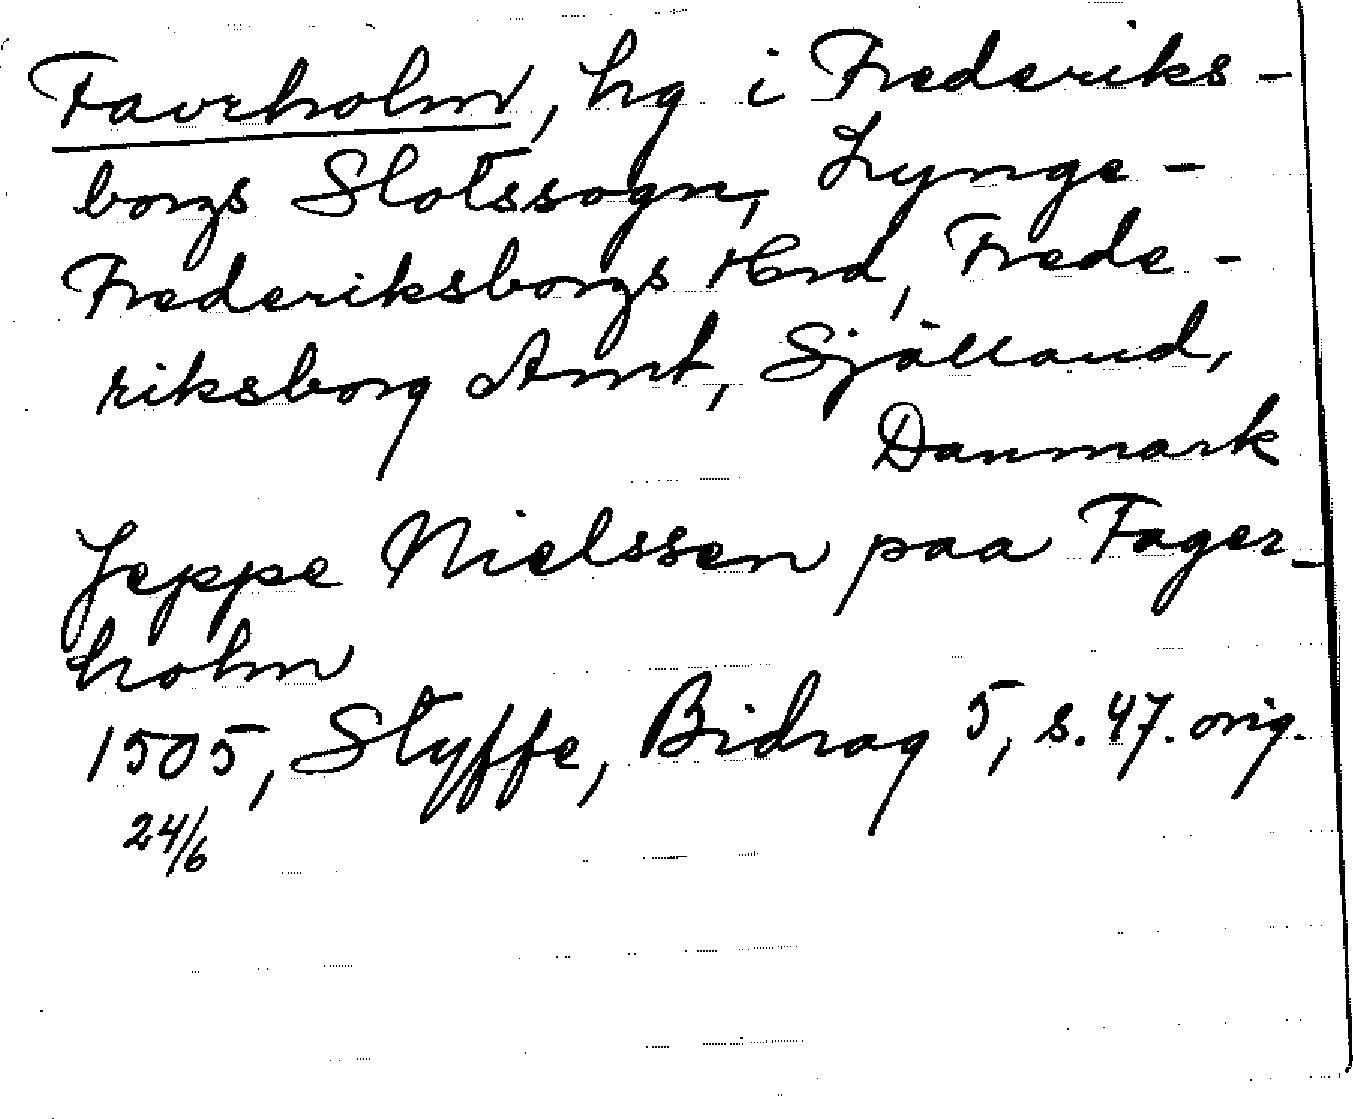 Favrholm, hg i Frederiks-
borgs Slotssogn, Lynge-
Frederiksborgs Hrd, Frede-
riksborg Amt, Själland,
Danmark
Jeppe Nielssen paa Fager-
holm
1505, Styffe, Bidrag 5, s. 47. orig.
24/6